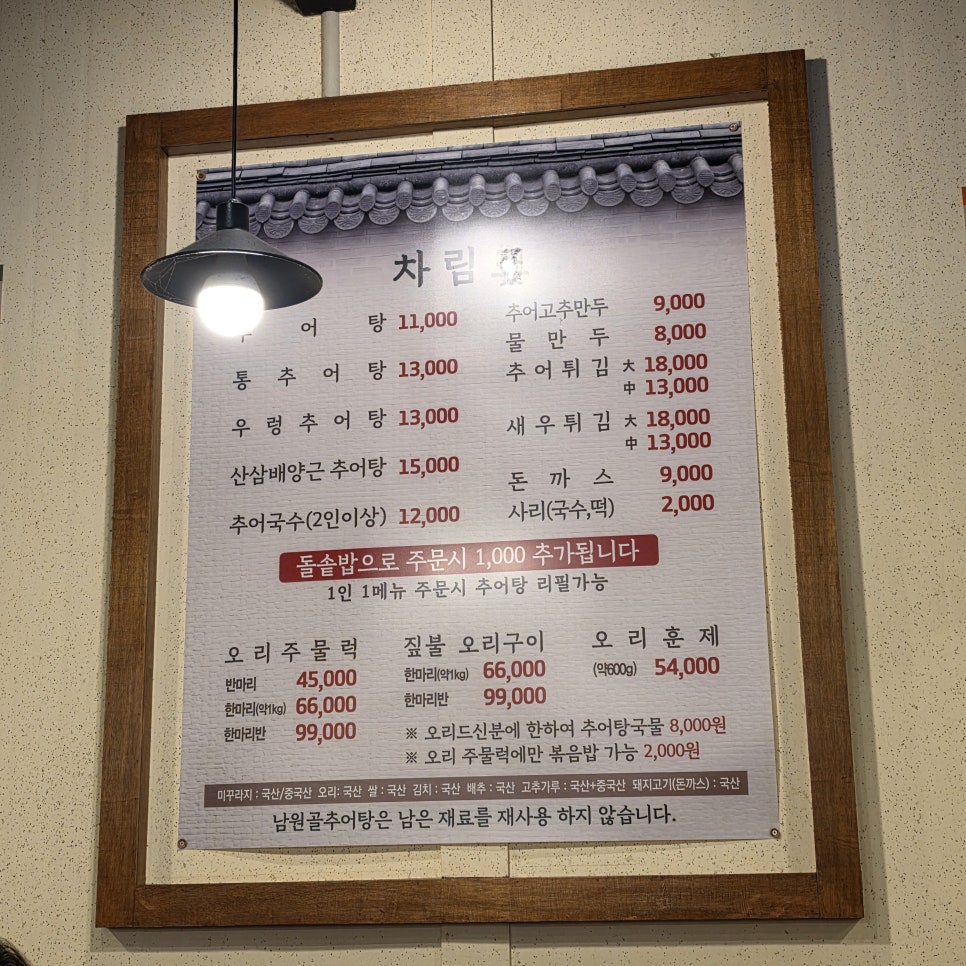 차림표
추어탕 11,000
통추어탕 13,000
우렁추어탕 13,000
산삼배양근 추어탕 15,000
추어국수(2인이상) 12,000
추어고추만두 9,000
물만두 8,000
추어튀김 大 18,000
中 13,000
새우튀김 大 18,000
中 13,000
돈까스 9,000
사리(국수,떡) 2,000
돌솥밥으로 주문시 1,000 추가됩니다
1인 1메뉴 주문시 추어탕 리필가능
오리주물럭
반마리 45,000
한마리(약1kg) 66,000
한마리반 99,000
짚불 오리구이
한마리(약1kg) 66,000
한마리반 99,000
오리훈제
(약600g) 54,000
※ 오리드신분에 한하여 추어탕국물 8,000원
※ 오리 주물럭에만 볶음밥 가능 2,000원
미꾸라지 : 국산/중국산 오리: 국산 쌀 : 국산 김치 : 국산 배추 : 국산 고추가루 : 국산+중국산 돼지고기(돈까스) : 국산
남원골추어탕은 남은 재료를 재사용 하지 않습니다.